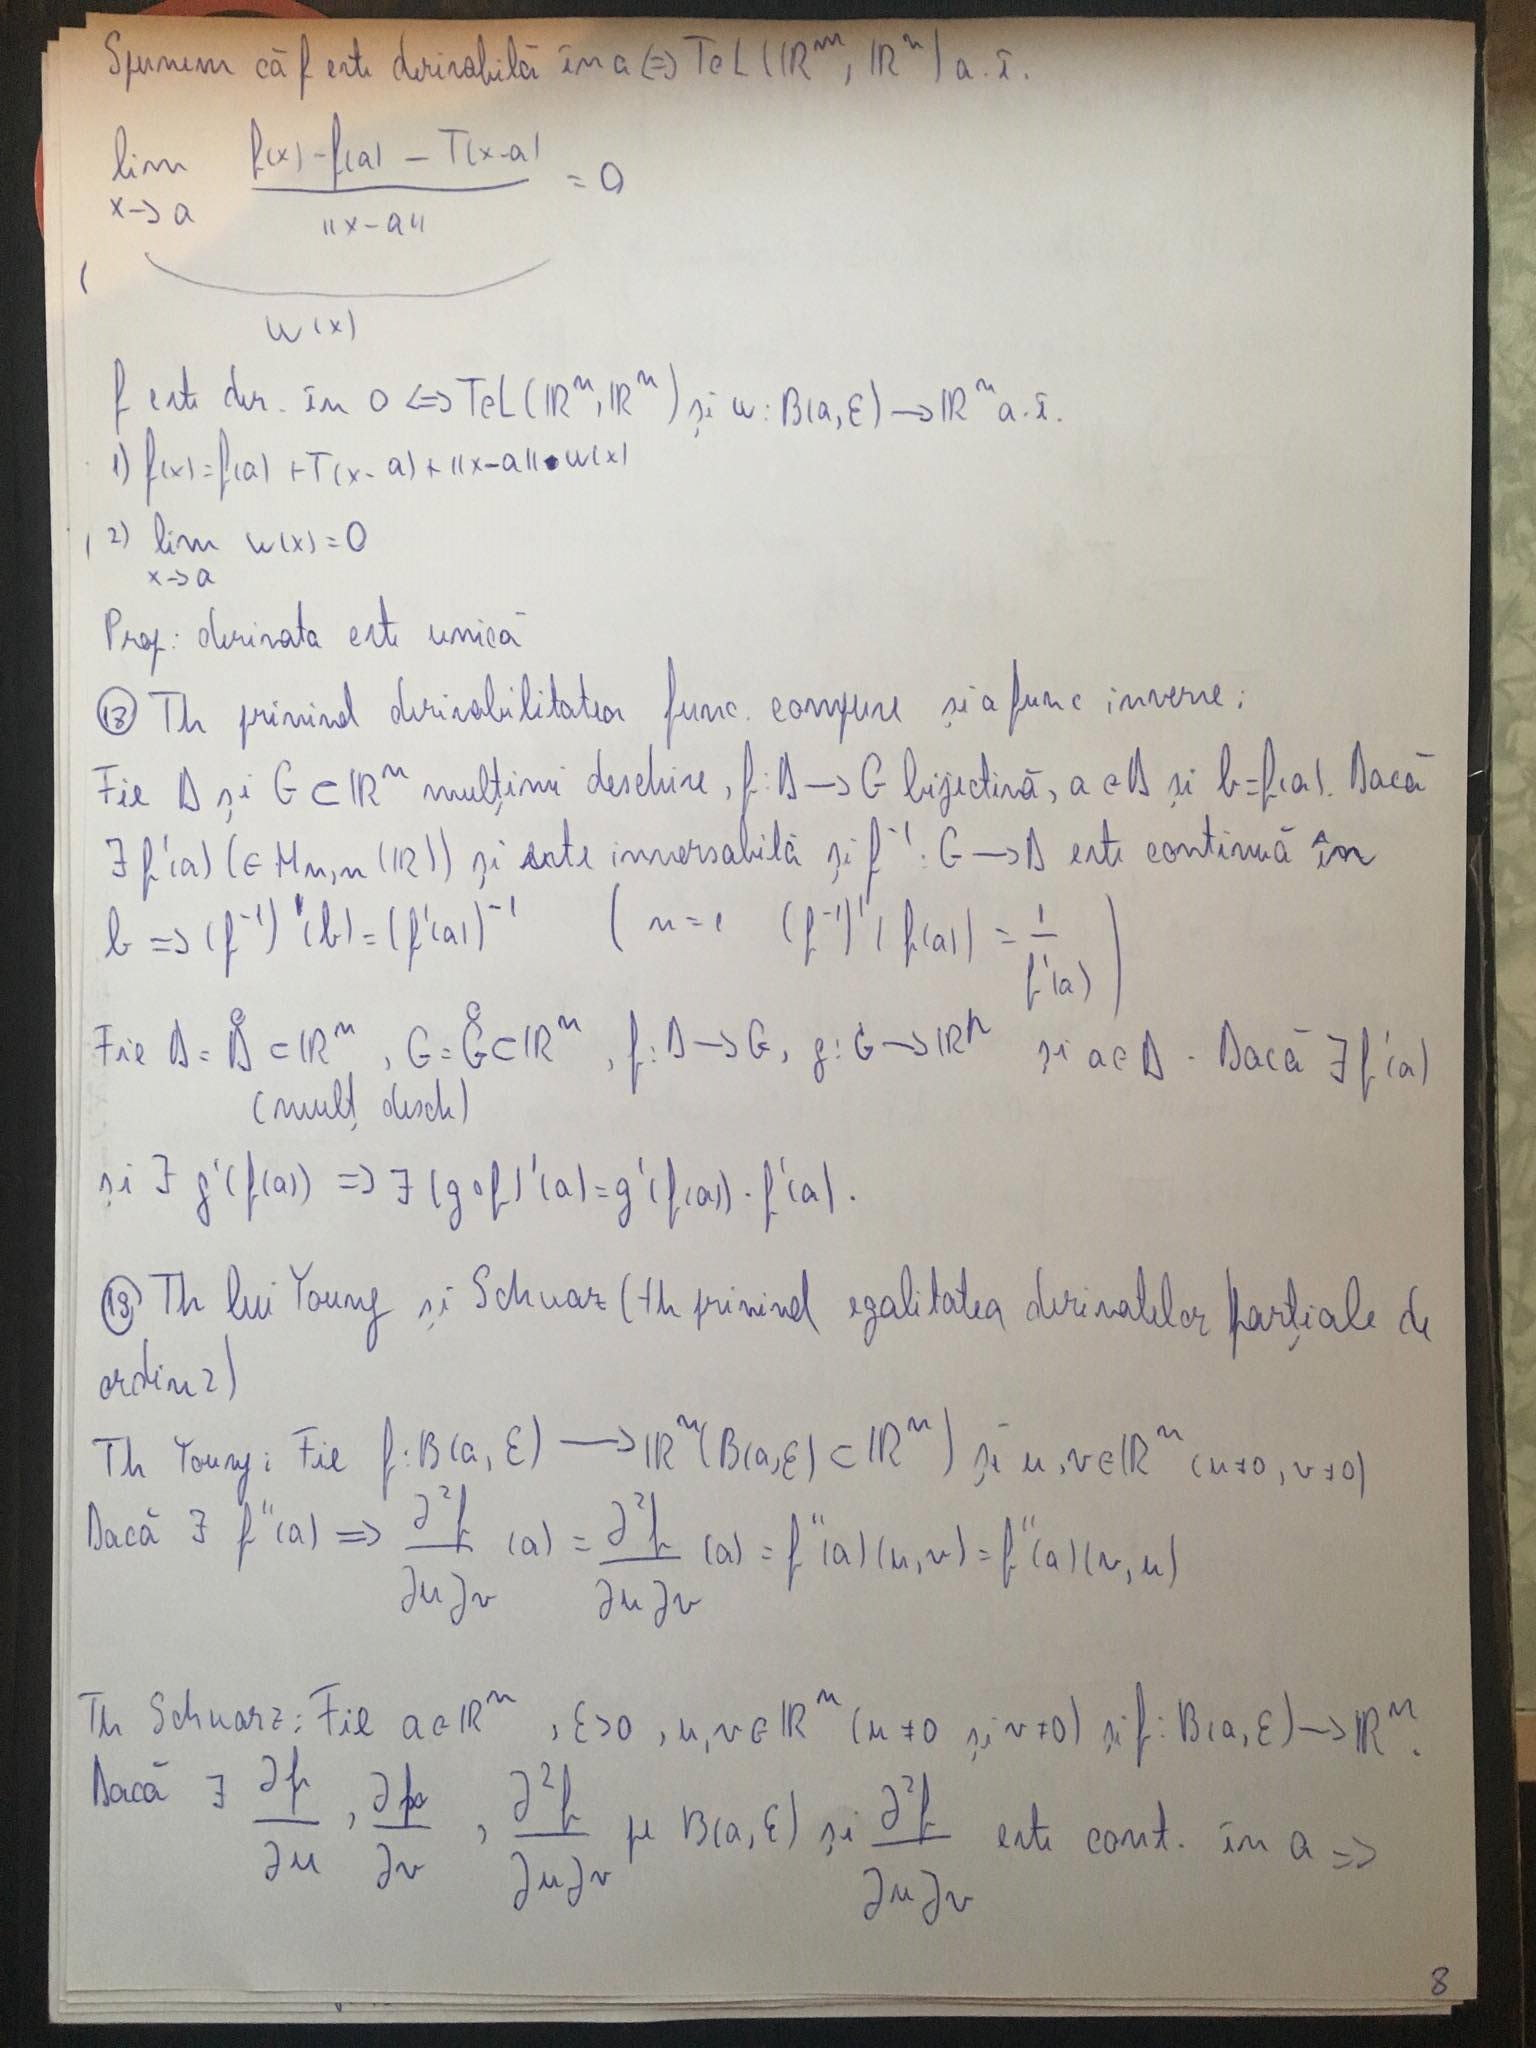 Spunem că f este derivabilă în a <=> T∈L(ℝᵐ, ℝⁿ) a.î.
lim x->a (f(x) - f(a) - T(x-a)) / ||x-a|| = 0
w(x)
f este der. în 0 <=> T∈L(ℝᵐ, ℝⁿ) și w: B(a, ε) -> ℝⁿ a.î.
1) f(x) = f(a) + T(x-a) + ||x-a|| • w(x)
2) lim x->a w(x) = 0
Prop: derivata este unică
(18) Th privind derivabilitatea func. compuse și a func inverse:
Fie D și G ⊂ ℝⁿ mulțimi deschise, f: D -> G bijectivă, a ∈ D și b = f(a). Dacă
∃ f'(a) (∈ Mn,n (ℝ)) și este inversabilă și f⁻¹: G -> D este continuă în
b => (f⁻¹)'(b) = (f'(a))⁻¹ (n=1 (f⁻¹)'(f(a)) = 1/f'(a))
Fie D = D̊ ⊂ ℝᵐ, G = G̊ ⊂ ℝⁿ, f: D -> G, g: G -> ℝᵖ și a ∈ D. Dacă ∃ f'(a)
(mulț desch)
și ∃ g'(f(a)) => ∃ (g∘f)'(a) = g'(f(a)) · f'(a).
(19) Th lui Young și Schwarz (th privind egalitatea derivatelor parțiale de
ordin 2)
Th Young: Fie f: B(a, ε) -> ℝⁿ (B(a,ε) ⊂ ℝᵐ) și u, v ∈ ℝᵐ (u≠0, v≠0)
Dacă ∃ f''(a) => ∂²f/∂u∂v (a) = ∂²f/∂u∂v (a) = f''(a)(u,v) = f''(a)(v,u)
Th Schwarz: Fie a ∈ ℝᵐ, ε>0, u,v ∈ ℝᵐ (u≠0 și v≠0) și f: B(a,ε) -> ℝⁿ.
Dacă ∃ ∂f/∂u, ∂f/∂v, ∂²f/∂u∂v pe B(a,ε) și ∂²f/∂u∂v este cont. în a =>
8